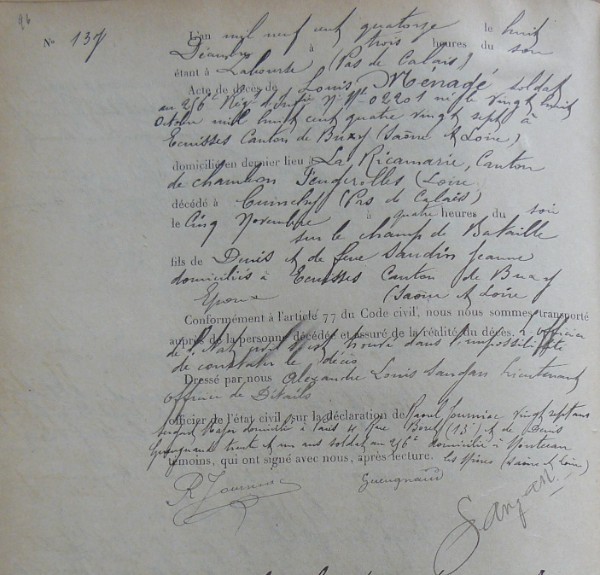 96
N° 137
L'an mil neuf cent quatorze le huit
Décembre à trois heures du soir
étant à Labourse (Pas de Calais)
Acte de décès de Louis Menagé soldat
au 256e Rég. d'Inftie N° Mle 02201 né le vingt huit
Octobre mil huit cent quatre vingt sept à
Ecuisses Canton de Buxy (Saône et Loire)
domicilié en dernier lieu à La Ricamarie, Canton
de Chambon Feugerolles (Loire
décédé à Cuinchy (Pas de Calais)
le Cinq Novembre à quatre heures du soir
sur le champ de Bataille
fils de Denis et de feue Jeanne
domiciliés à Ecuisses Canton de Buxy
Epoux (Saône et Loire
Conformément à l'article 77 du Code civil, nous nous sommes transporté
auprès de la personne décédée et assuré de la réalité du décès. L'officier
de l'Etat civil s'est trouvé dans l'impossibilité
de constater le décès
Dressé par nous Alexandre Louis Sangan Lieutenant
officier de Détails
officier de l'état civil, sur la déclaration de Raoul Journiac vingt sept ans
Sergent Major domicilié à Paris 4 Rue (13e) et de Denis
Gueugnaud trente et un ans soldat au 256e domicilié à Montceau
témoins, qui ont signé avec nous, après lecture. les Mines (Saône et Loire)
R Journiac Gueugnaud
Sangan